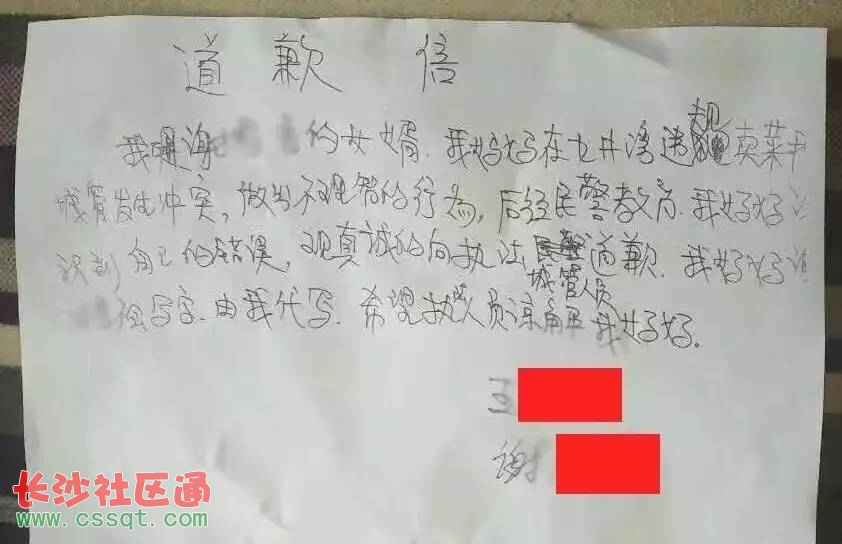 道歉信
我是谢 的女婿.我妈妈在七井湾违规卖菜和
城管发生冲突,做出不理智的行为,后经民警教育.我妈妈认
识到自己的错误,现真诚的向执法城管人员道歉.我妈妈
写字.由我代写.希望执法人员谅解我妈妈。
王
谢
长沙社区通
www.cssqt.com